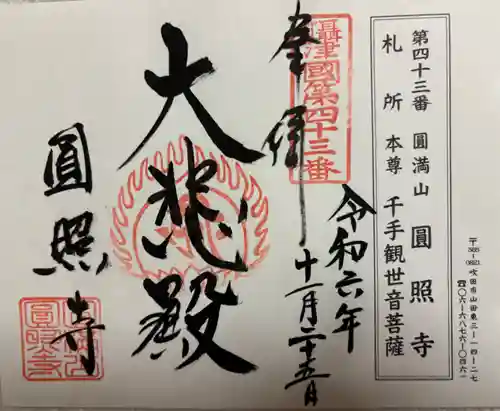 第四十三番 圓満山 圓照寺
札所 本尊 千手観世音菩薩
〒565-0821 吹田市山田東三-一四-二七
☎〇六-六八七六-〇四六一
奉拝
攝津國第四十三番
令和六年
十一月二十五日
大悲殿
圓照寺